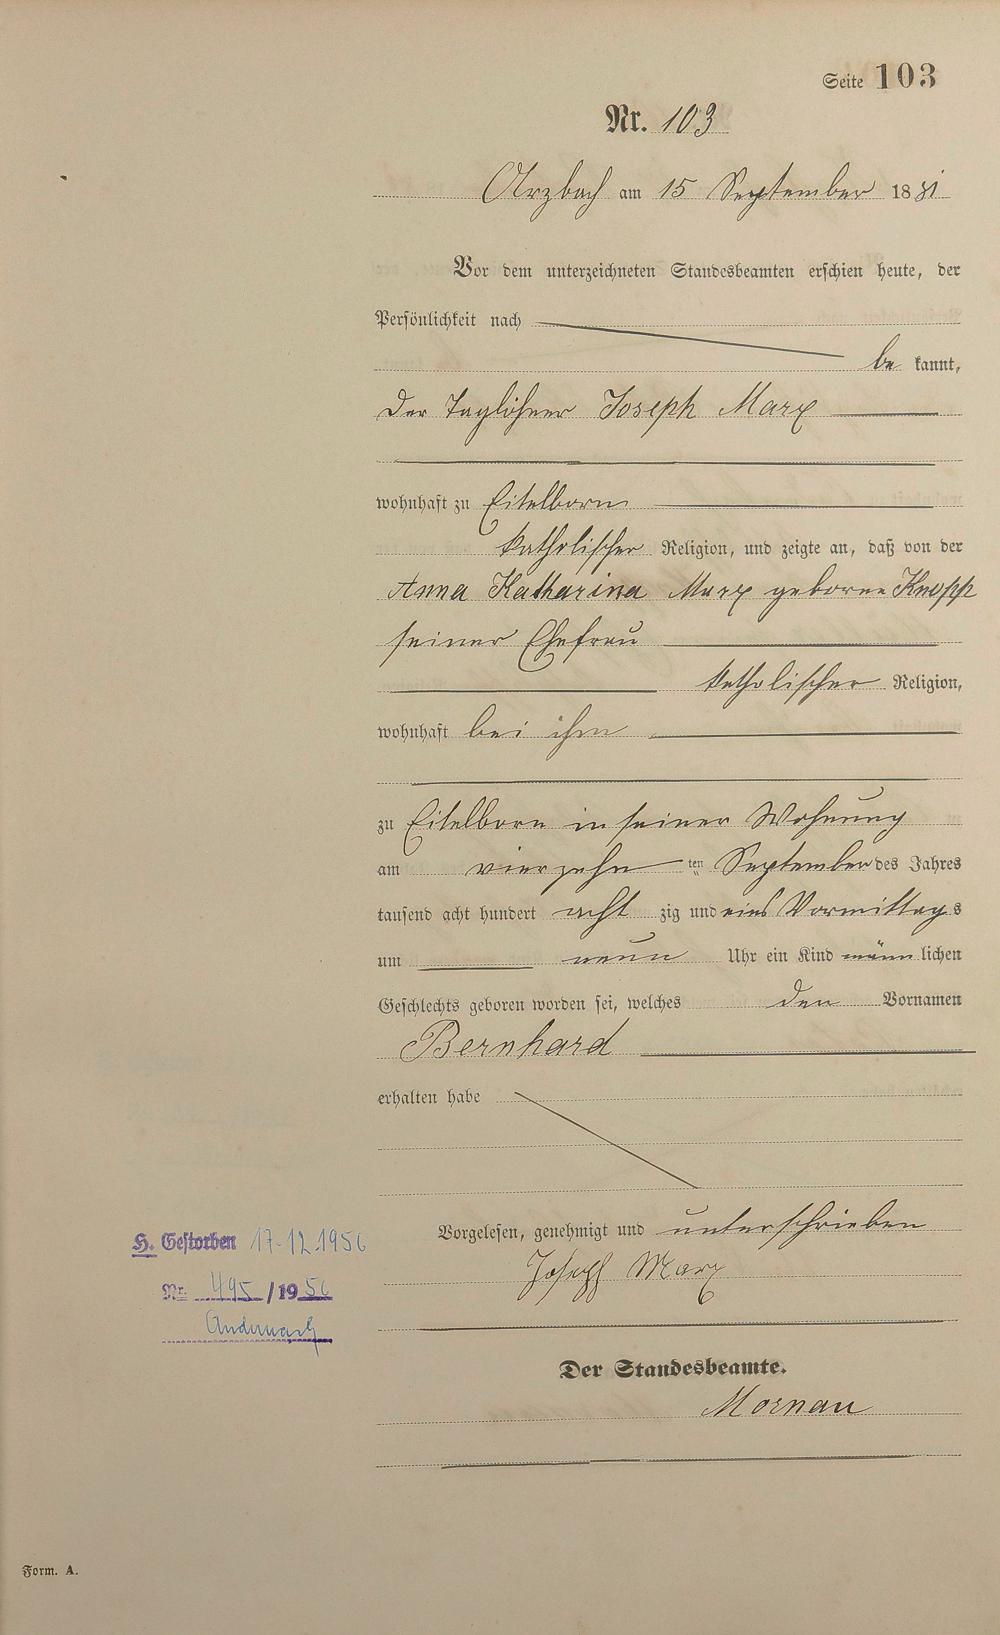 Seite 103
Nr. 103
Arzbach am 15 September 1881
Vor dem unterzeichneten Standesbeamten erschien heute, der
Persönlichkeit nach
be kannt,
der Taglöhner Joseph Marx
wohnhaft zu Eitelborn
katholischer Religion, und zeigte an, daß von der
Anna Katharina Marx geborne Knopp
seiner Ehefrau
katholischer Religion,
wohnhaft bei ihm
zu Eitelborn in seiner Wohnung
am vierzehn ten September des Jahres
tausend acht hundert acht zig und eins Vormittags
um neun Uhr ein Kind männlichen
Geschlechts geboren worden sei, welches den Vornamen
Bernhard
erhalten habe
Vorgelesen, genehmigt und unterschrieben
Joseph Marx
H. Gestorben 17.12.1956
Nr. 495/1956
Andernach
Der Standesbeamte.
Mornau
Form. A.